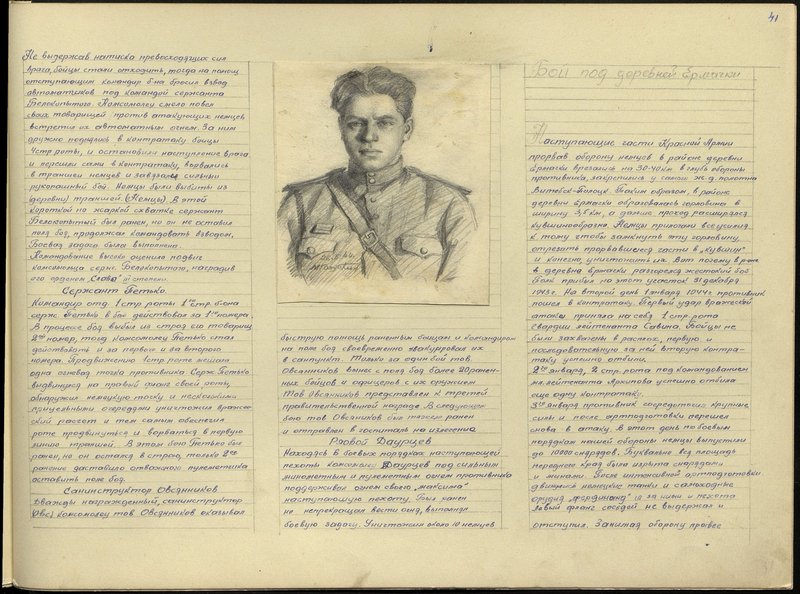 41
Не выдержав натиска превосходящих сил
врага, бойцы стали отходить, тогда на помощ
отступающим командир б-на бросил взвод
автоматчиков под командой сержанта
Белокопытого. Комсомолец смело повел
своих товарищей против атакующих немцев
встретив их автоматным огнем. За ним
дружно поднялись в контратаку бойцы
1 стр. роты, и остановили наступление врага
и перешли сами в контратаку, ворвались
в траншеи немцев и завязали сильный
рукопашный бой. Немцы были выбиты из
(деревни) траншей. (Немцы). В этой
короткой но жаркой схватке сержант
Белокопытый был ранен, но он не оставил
поля боя, продолжая командовать взводом,
Боевая задача была выполнена.
Командование высоко оценило подвиг
комсомольца серж. Белокопытого, наградив
его орденом "Слава" III степени.
Сержант Петько.
Командир отд. 1 стр. роты 1го стр. б-она
серж. Петько в бою действовал за 1го номера.
В процессе боя выбыл из строя его товарищ
2ой номер, тогда комсомолец Петько стал
действовать и за первого и за второго
номера. Продвижению 1 стр. роте мешала
одна огневая точка противника. Серж. Петько
выдвинулся на правый фланг своей роты,
обнаружил немецкую точку и несколькими
прицельными очередями уничтожил вражес-
кий расчет и тем самым обеспечил
роте продвинуться и ворваться в первую
линию траншей. В этом бою Петько был
ранен, но он остался в строю, только 2ое
ранение заставило отважного пулеметчика
оставить поле боя.
Санинструктор Овсянников
Дважды награжденный, санинструктор
(Овс) комсомолец тов. Овсянников оказывал
быструю помощь раненным бойцам и командирам
на поле боя своевременно эвакуировал их
в санпункт. Только за один бой тов.
Овсянников вынес с поля боя более 20 ранен-
ных бойцов и офицеров с их оружием
Тов Овсянников представлен к третей
правительственной награде. В следующем
бою тов Овсянников был тяжело ранен
и отправлен в госпиталь на излечение
Рядовой Даурцев
Находясь в боевых порядках наступающей
пехоты комсомолец Даурцев под сильным
минометным и пулеметным огнем противника
поддерживал огнем своего "максима"
наступающую пехоту. Был ранен
но непрекращая вести огня, выполнял
боевую задачу. Уничтожил около 10 немцев
Бой под деревней Ермачки
Наступающие части Красной Армии
прорвав оборону немцев в районе деревни
Ермачки врезались на 30-40 км в глубь обороны
противника, закрепились у самого ж.д. полотна
Витебск-Полоцк. Таким образом, в районе
деревни Ермачки образовалась горловина в
ширину 3,5 км, а дальше проход расширялся
кувшинообразно. Немцы приложили все усилия
к тому чтобы замкнуть эту горловину,
отрезать прорвавшиеся части в "кувшин"
и конечно, уничтожить их. Вот потому в р-не
в деревни Ермачки разгорелся жестокий бой
Полк прибыл на этот участок 31 декабря
1943 г. На второй день 1 января 1944 г противник
пошел в контратаку. Первый удар вражеской
атаки приняла на себя 1 стр. рота
гвардии лейтенанта Савина. Бойцы не
были захвачены в расплох, первую и
последовательную за ней вторую контра-
таку успешно отбили.
2го января, 2 стр. рота под командованием
мл. лейтенанта Архипова успешно отбила
еще одну контратаку.
3го января противник сосредоточил крупные
силы и после артподготовки перешел
снова в атаку. В этот день по боевым
порядкам нашей обороны немцы выпустили
до 10000 снарядов. Буквально вся площадь
переднего края была изрыта снарядами
и минами. После интенсивной артподготовки
двинулись немецкие танки и самоходные
орудия "фердинанд" (а за ними и пехота
левый фланг соседей не выдержал и
отступил. Занимая оборону правее